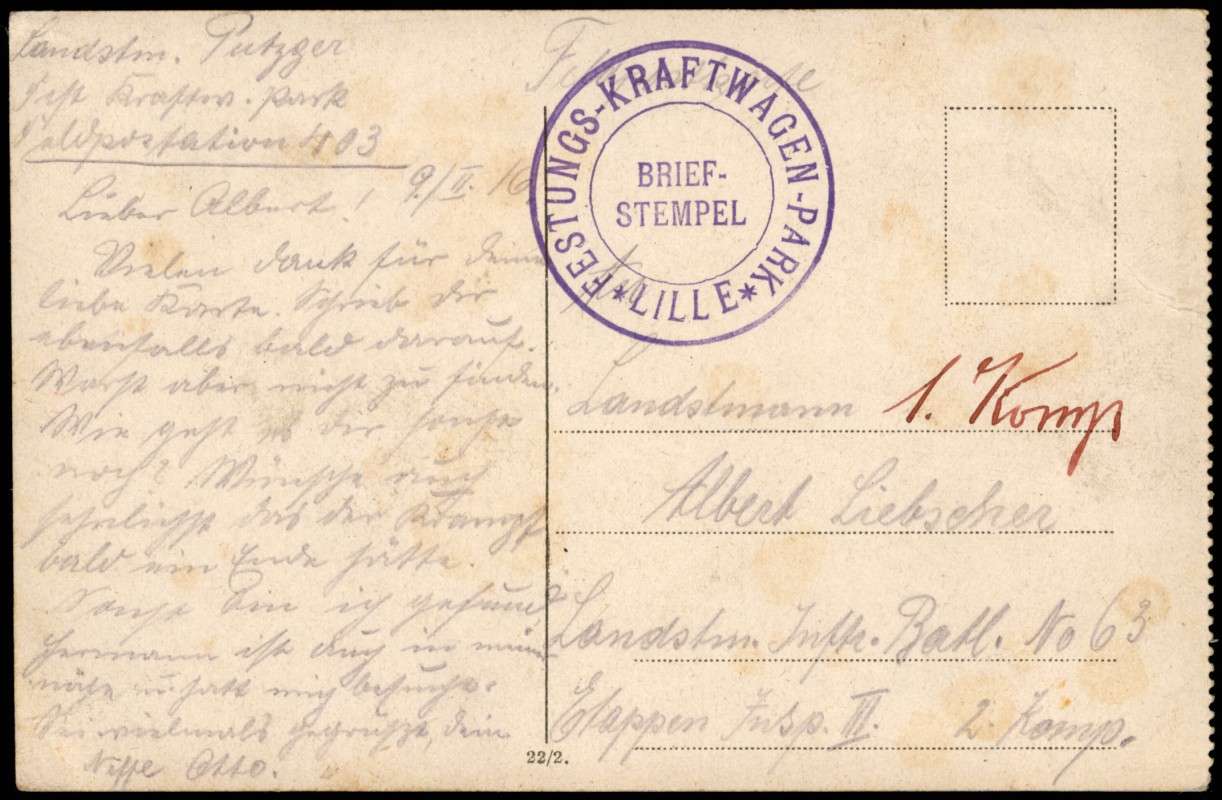 Landstm. Putzger
Fest Kraftw. Park
Feldpostation 403
9./II. 16.
Lieber Albert!
Vielen dank für deine
liebe Karte. Schrieb dir
ebenfalls bald darauf.
Warst aber nicht zu finden.
Wie geht es dir sonst
noch? Wünsche auch
sehnlichst das der Krampf
bald ein Ende hätte.
Sonst bin ich gesund
Hermann ist auch in meiner
nähe u. hatt mich besucht.
Sei vielmals gegrüßt, dein
Neffe Otto.
Feldpostkarte
FESTUNGS-KRAFTWAGEN-PARK
BRIEF-
STEMPEL
*LILLE*
An
Landstmann 1. Komp
Albert Liebscher
Landstm. Inftr. Batl. No 63
Etappen Insp. III. 2. Komp.
22/2.